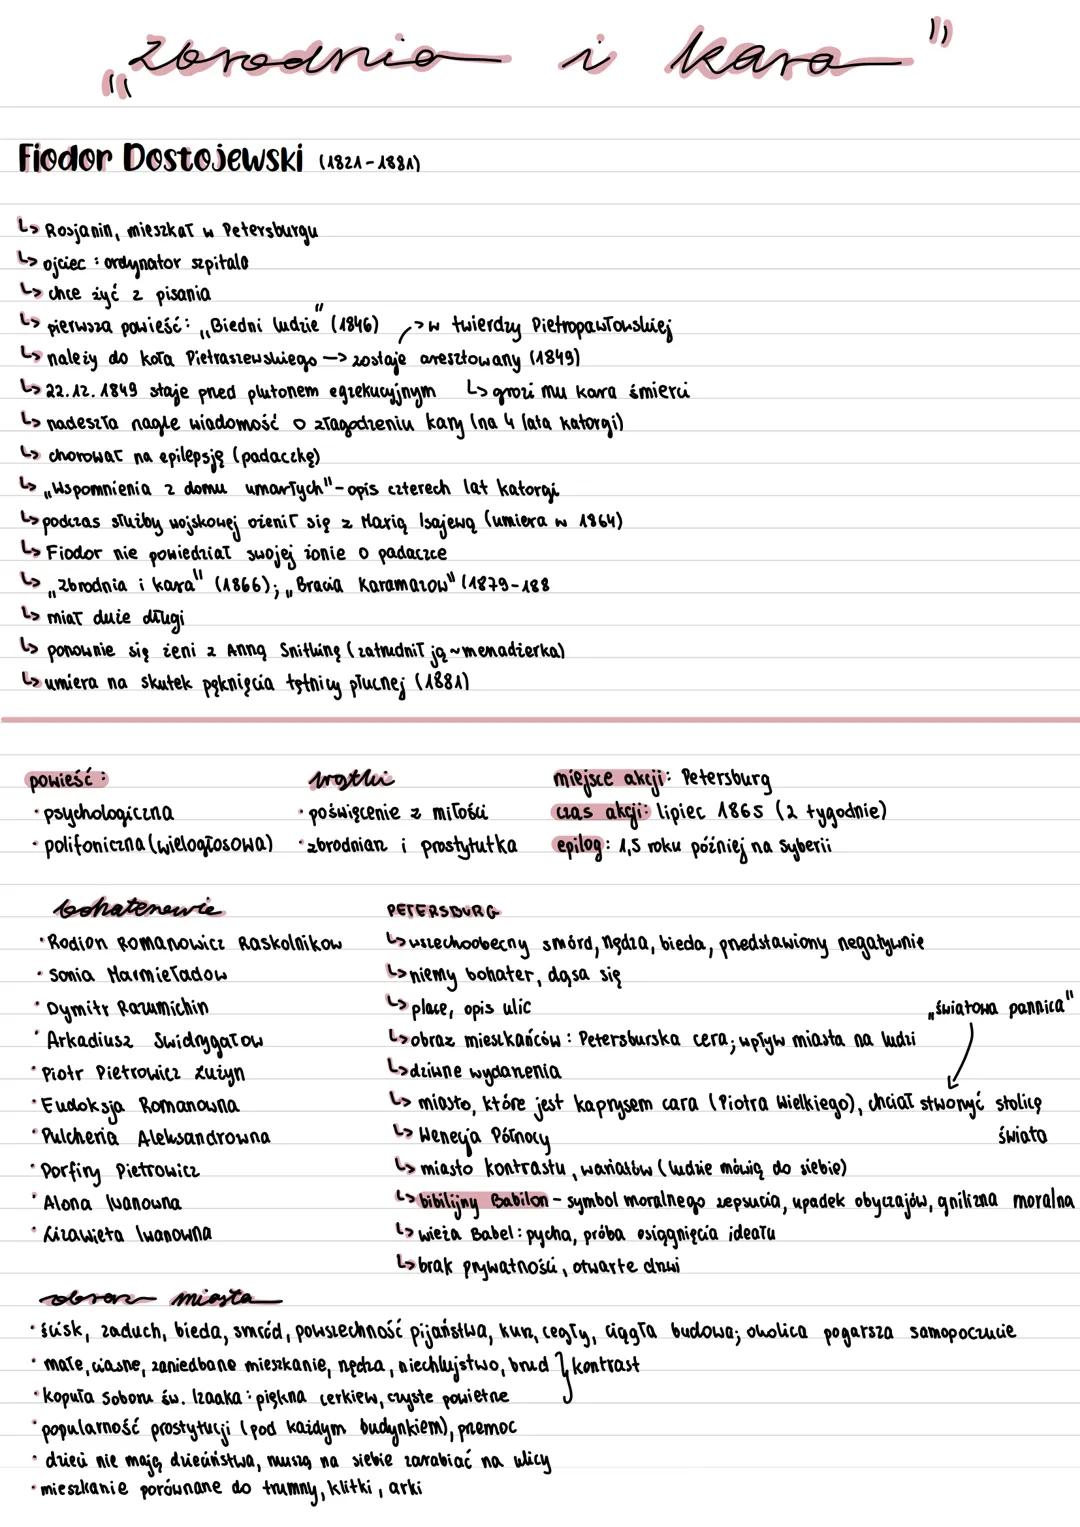 „Zbrodnia i kara"
Fiodor Dostojewski (1821-1881)
↳ Rosjanin, mieszkał w Petersburgu
↳ ojciec: ordynator szpitala
↳ chce żyć z pisania
↳ pierwsza powieść: „Biedni ludzie" (1846)
↳ należy do koła Pietraszewskiego → zostaje aresztowany (1849)
→ w twierdzy Pietropawłowskiej
↳ grozi mu kara śmierci
↳ 22.12.1849 staje przed plutonem egzekucyjnym
↳ nadeszła nagle wiadomość o złagodzeniu kary (na 4 lata katorgi)
↳ chorował na epilepsję (padaczkę)
↳ „Wspomnienia z domu umarłych" - opis czterech lat katorgi
↳ podczas służby wojskowej ożenił się z Marią Isajewą (umiera w 1864)
↳ Fiodor nie powiedział swojej żonie o padaczce
↳ „Zbrodnia i kara" (1866); „Bracia Karamazow" (1879-188
↳ miał duże długi
↳ ponownie się żeni z Anną Snitkinę (zatrudnił ją ~menadżerka)
↳ umiera na skutek pęknięcia tętnicy płucnej (1881)
powieść:
· psychologiczna
· polifoniczna (wielogłosowa)
wątki
· poświęcenie z miłości
· zbrodniarz i prostytutka
miejsce akcji: Petersburg
czas akcji: lipiec 1865 (2 tygodnie)
epilog: 1,5 roku później na Syberii
bohaterowie
· Rodion Romanowicz Raskolnikow
· Sonia Marmieładow
· Dymitr Razumichin
· Arkadiusz Swidrygałow
· Piotr Pietrowicz Łużyn
· Eudoksja Romanowna
· Pulcheria Aleksandrowna
· Porfiry Pietrowicz
· Alona Iwanowna
· Lizawieta Iwanowna
PETERSBURG
↳ wszechoobecny smórd, nędza, bieda, przedstawiony negatywnie
↳ niemy bohater, dąsa się
↳ place, opis ulic
↳ obraz mieszkańców: Petersburska cera; wpływ miasta na ludzi
↳ dziwne wydarzenia
„światowa pannica"
↳ miasto, które jest kaprysem cara (Piotra Wielkiego), chciał stworzyć stolicę
świata
↳ Wenecja Północy
↳ miasto kontrastu, wariatów (ludzie mówią do siebie)
↳ bibilijny Babilon - symbol moralnego zepsucia, upadek obyczajów, gnilizna moralna
↳ wieża Babel: pycha, próba osiągnięcia ideału
↳ brak prywatności, otwarte drzwi
obraz miasta
· ścisk, zaduch, bieda, smród, powszechność pijaństwa, kurz, cegły, ciągła budowa; okolica pogarsza samopoczucie
· małe, ciasne, zaniedbane mieszkanie, nędza, niechlujstwo, brud } kontrast
· kopuła Soboru św. Izaaka: piękna cerkiew, czyste powietrze
· popularność prostytucji (pod każdym budynkiem), przemoc
· dzieci nie mają dzieciństwa, muszą na siebie zarabiać na ulicy
· mieszkanie porównane do trumny, klitki, arki